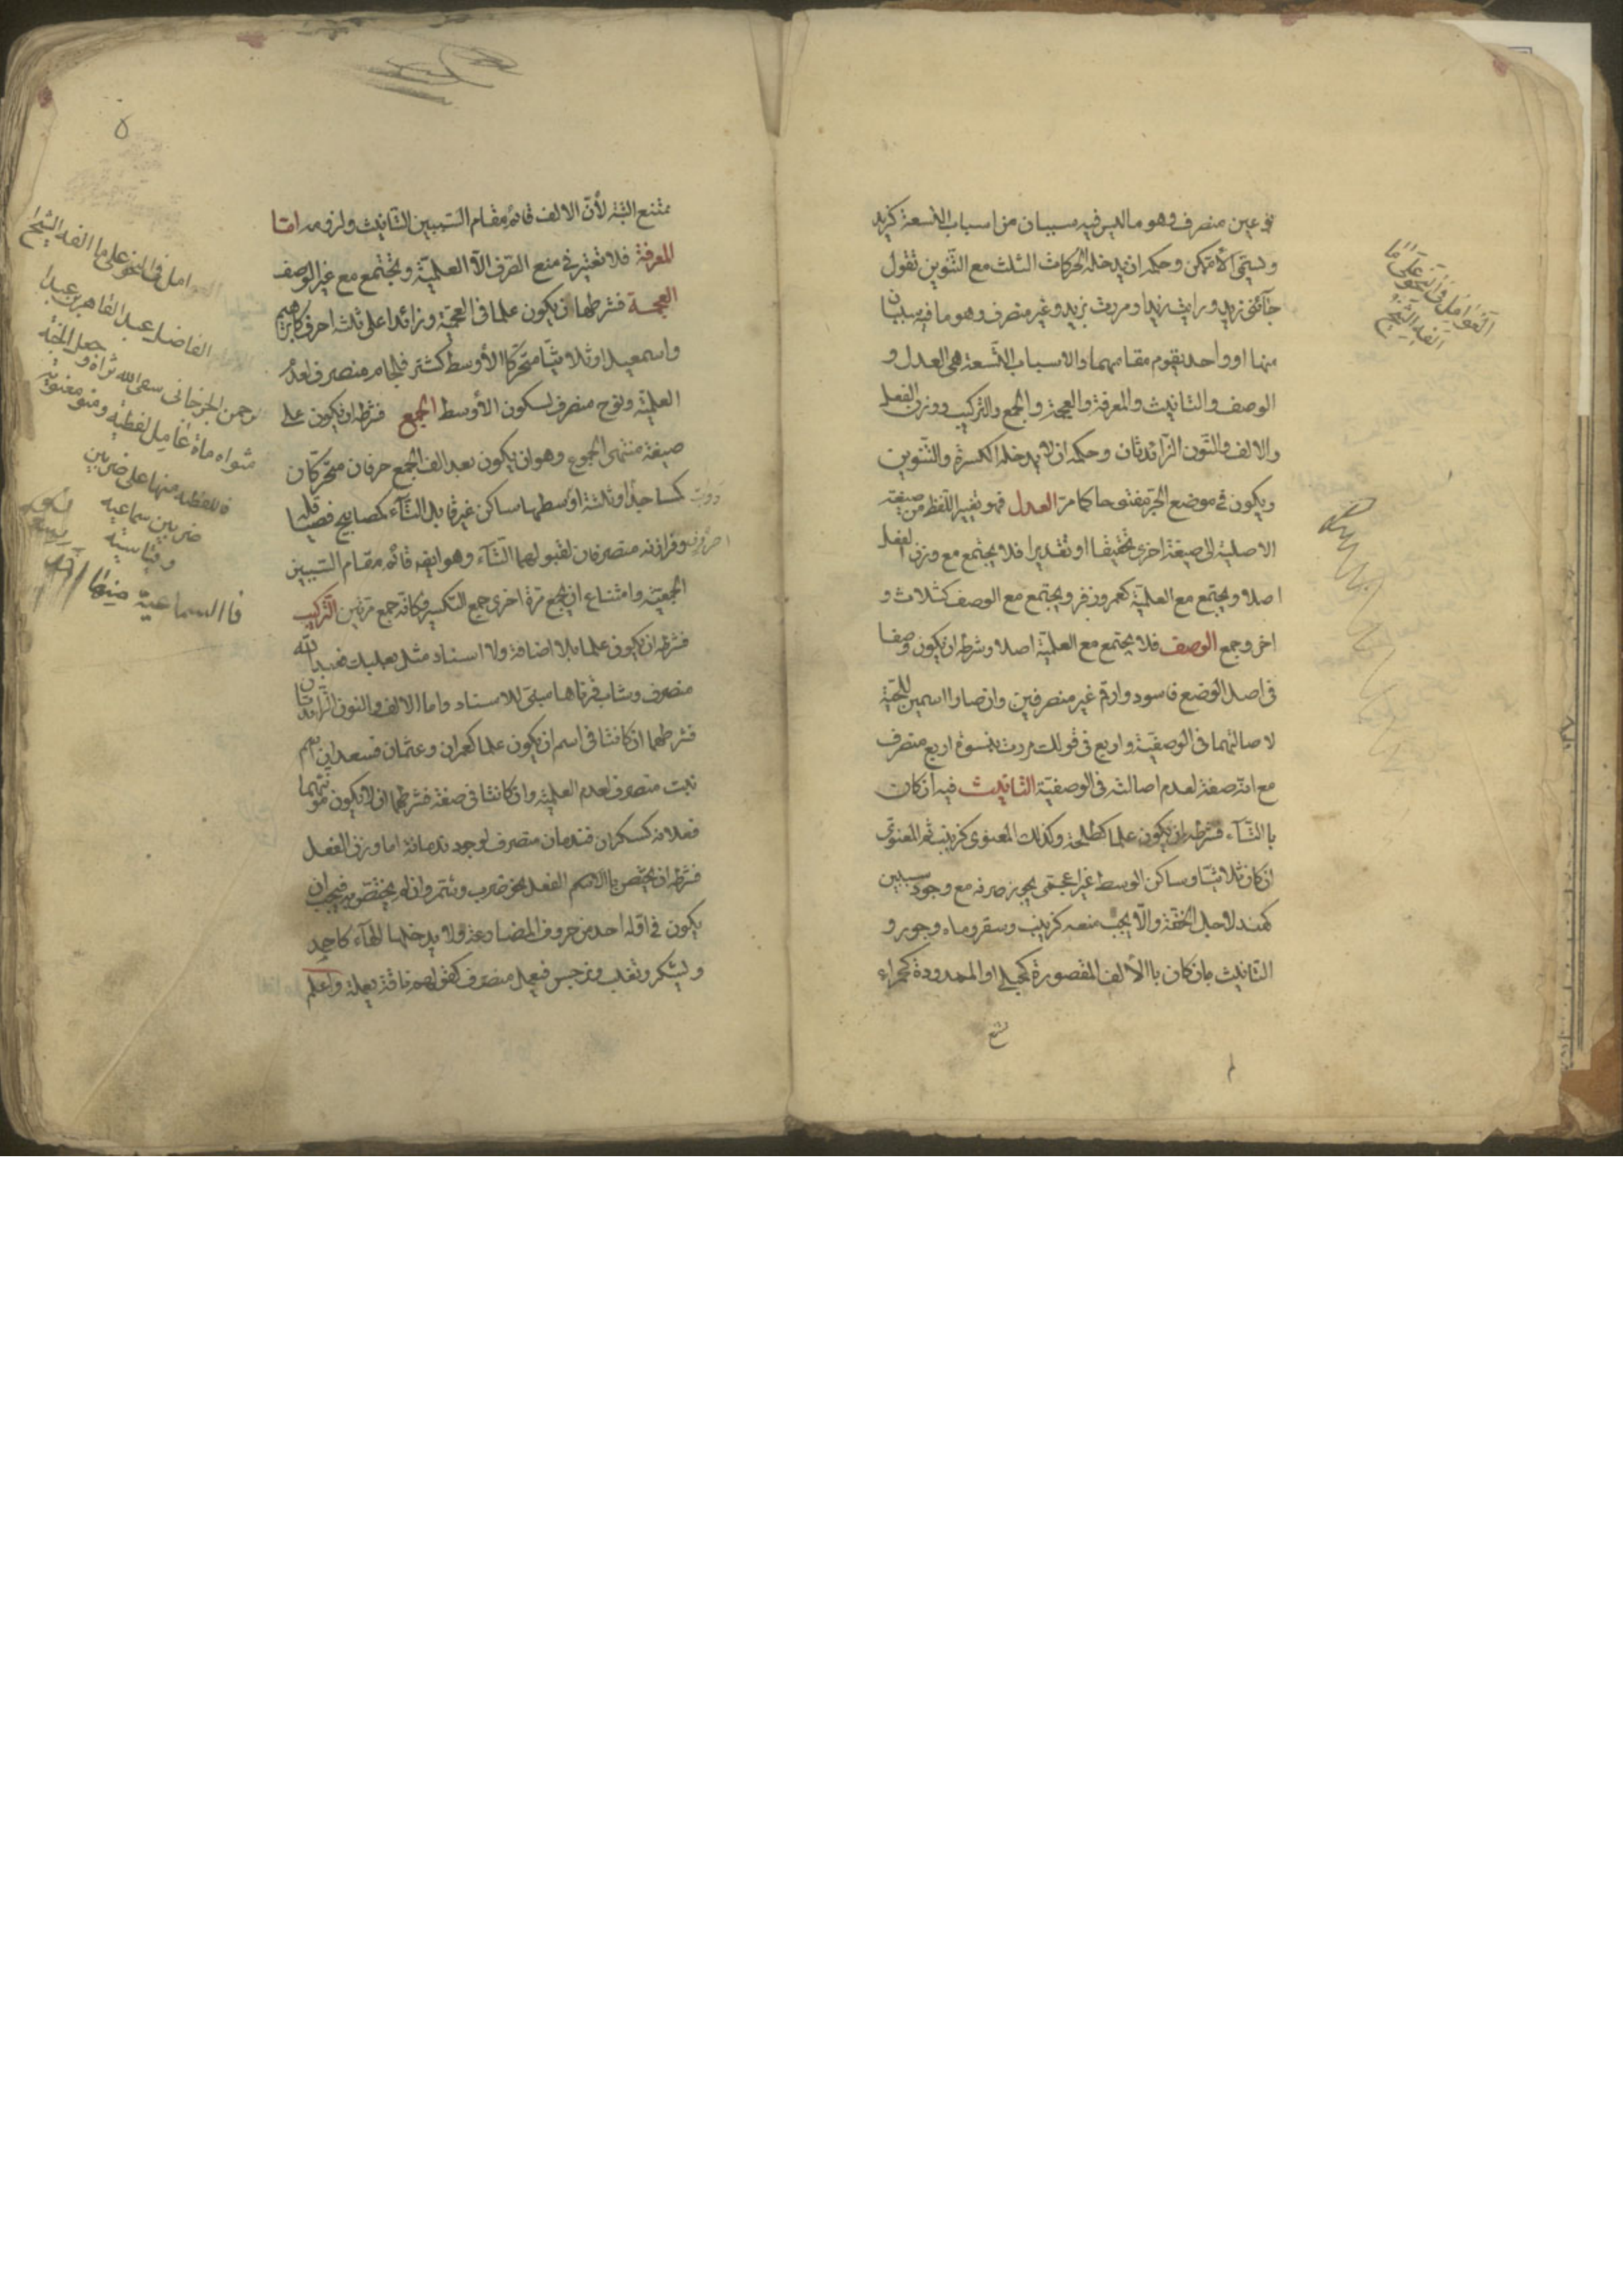 نوعين منصرف وهو ما ليس فيه سببان من اسباب التسعة كزيد
ويسمى الأمتمكن وحكمه ان يدخله الحركات الثلث مع التنوين تقول
جائنى زيد ورايت زيدا ومررت بزيد وغير منصرف وهو ما فيه سببان
منها او واحد يقوم مقامهما والاسباب التسعة هى العدل و
الوصف والتانيث والمعرفة والعجمة والجمع والتركيب ووزن الفعل
والالف والنون الزائدتان وحكمه ان لا يدخله الكسرة والتنوين
ويكون فى موضع الجر مفتوحا كما مر العدل فهو تغيير اللفظ من صيغته
الاصلية الى صيغة اخرى تحقيقا او تقديرا فلا يجتمع مع وزن الفعل
اصلا ويجتمع مع العلمية كعمر وزفر ويجتمع مع الوصف كثلاث و
اخر وجمع الوصف فلا يجتمع مع العلمية اصلا وشرطه ان يكون وصفا
فى اصل الوضع فاسود وارقم غير منصرفين وان صارا اسمين للحية
لاصالتهما فى الوصفية واربع فى قولك مررت بنسوة اربع منصرف
مع انه صفة لعدم اصالته فى الوصفية التانيث فيه ان كان
باالتاء فشرطه ان يكون علما كطلحة وكذلك المعنوى كزينب ثم المعنوى
ان كان ثلاثيا وساكن الوسط غير اعجمى يجوز صرفه مع وجود سببين
كهند لاجل الخفة والا يجب منعه كزينب وسقر وماه وجور و
التانيث وان كان باالألف المقصورة كحبلى او الممدودة كحمراء
العوامل فى النحو على ما
الفه الشيخ
ممتنع البتة لأن الالف قائم مقام السببين التانيث ولزومه اما
المعرفة فلا تعتبر فى منع الصرف الا العلمية وتجتمع مع غير الوصف
العجمة فشرطها ان يكون علما فى العجمة وزائدا على ثلثة احرف كابراهيم
واسمعيل او ثلاثيا متحركا الأوسط كشتر فلجام منصرف لعدم
العلمية ونوح منصرف لسكون الأوسط الجمع فشرطه ان يكون على
صيغة منتهى الجموع وهو ان يكون بعد الف الجمع حرفان متحركان
كمساجد او ثلثة اوسطها ساكن غير قابل للتاء كمصابيح فصياقلة
وفرازنة منصرفان لقبولهما التاء وهو ايضا قائم مقام السببين
الجمعية وامتناع ان يجمع مرة اخرى جمع التكسير وكانه جمع مرتين التركيب
فشرطه ان يكون علما بلا اضافة ولا اسناد مثل بعلبك فعبد الله
منصرف وشاب قرناها مبنى للاسناد واما الالف والنون الزائدتان
فشرطهما ان كانتا فى اسم ان يكون علما كعمران وعثمان فسعدان اسم
نبت منصرف لعدم العلمية وان كانتا فى صفة فشرطهما ان لا يكون مؤنثهما
فعلانة كسكران فندمان منصرف لوجود ندمانة اما وزن الفعل
فشرطه ان يختص باالاسم الفعل نحو ضرب وشمر وان لم يختص به فيجب ان
يكون فى اوله احد من حروف المضارعة ولا يدخلها الهاء كاحمد
ويشكر وتغلب ونرجس فيعمل منصرف كقولهم ناقة يعملة واعلم
٥
العوامل فى النحو على ما الفه الشيخ
الفاضل عبد القاهر بن عبد ا
لرحمن الجرجانى سقى الله ثراه و جعل الجنة
مثواه ماة عامل لفظية ومعنوية
فاللفظية منها على ضربين
ضربين سماعية
وقياسية
فاالسماعية منها